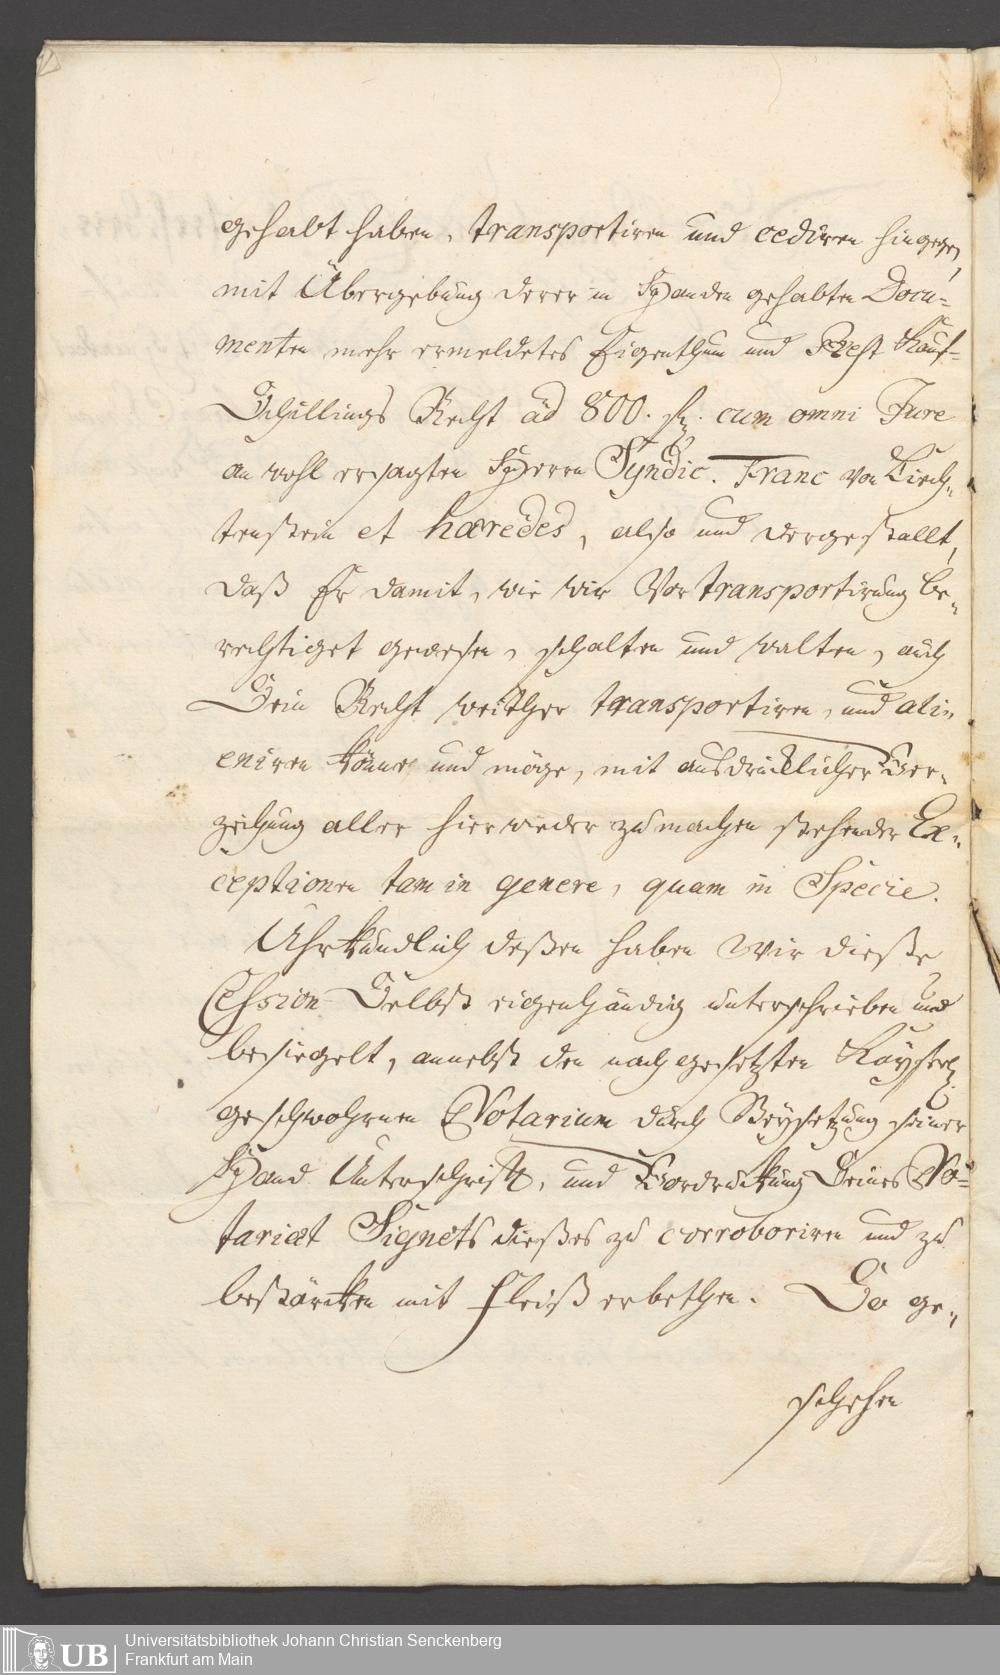 gehabt haben, transportiren und cediren hingegen
mit Übergebung derer in Handen gehabten Docu-
menten mehr ermeldetes Eigenthum und Rest Kauf-
Schillings Recht ad 800. fl. cum omni Jure
an wohl ersagten Herrn Syndic. Franc von Liech-
tenstein et hæredes, also und dergestallt,
daß Er damit, wie wir Vor transportirung be-
rechtiget gewesen, schalten und walten, auch
Sein Recht weither transportiren, und ali-
eniren könne und möge, mit ausdrücklicher Ver-
zeihung aller hierwieder zu machen stehender Ex-
ceptionen tam in genere, quam in Specie.
Uhrkundlich deßen haben Wir dieße
Cession Selbst eigenhändig unterschrieben und
besiegelt, annebst den nachgesetzten Kayserl.
geschwohrnen Notarium durch Beysetzung seiner
Hand Unterschrifft, und Vordruckung Seines No-
tariat Signets dießes zu corroboriren und zu
bestärcken mit Fleiß erbethen. So ge-
schehen
Universitätsbibliothek Johann Christian Senckenberg
Frankfurt am Main
UB